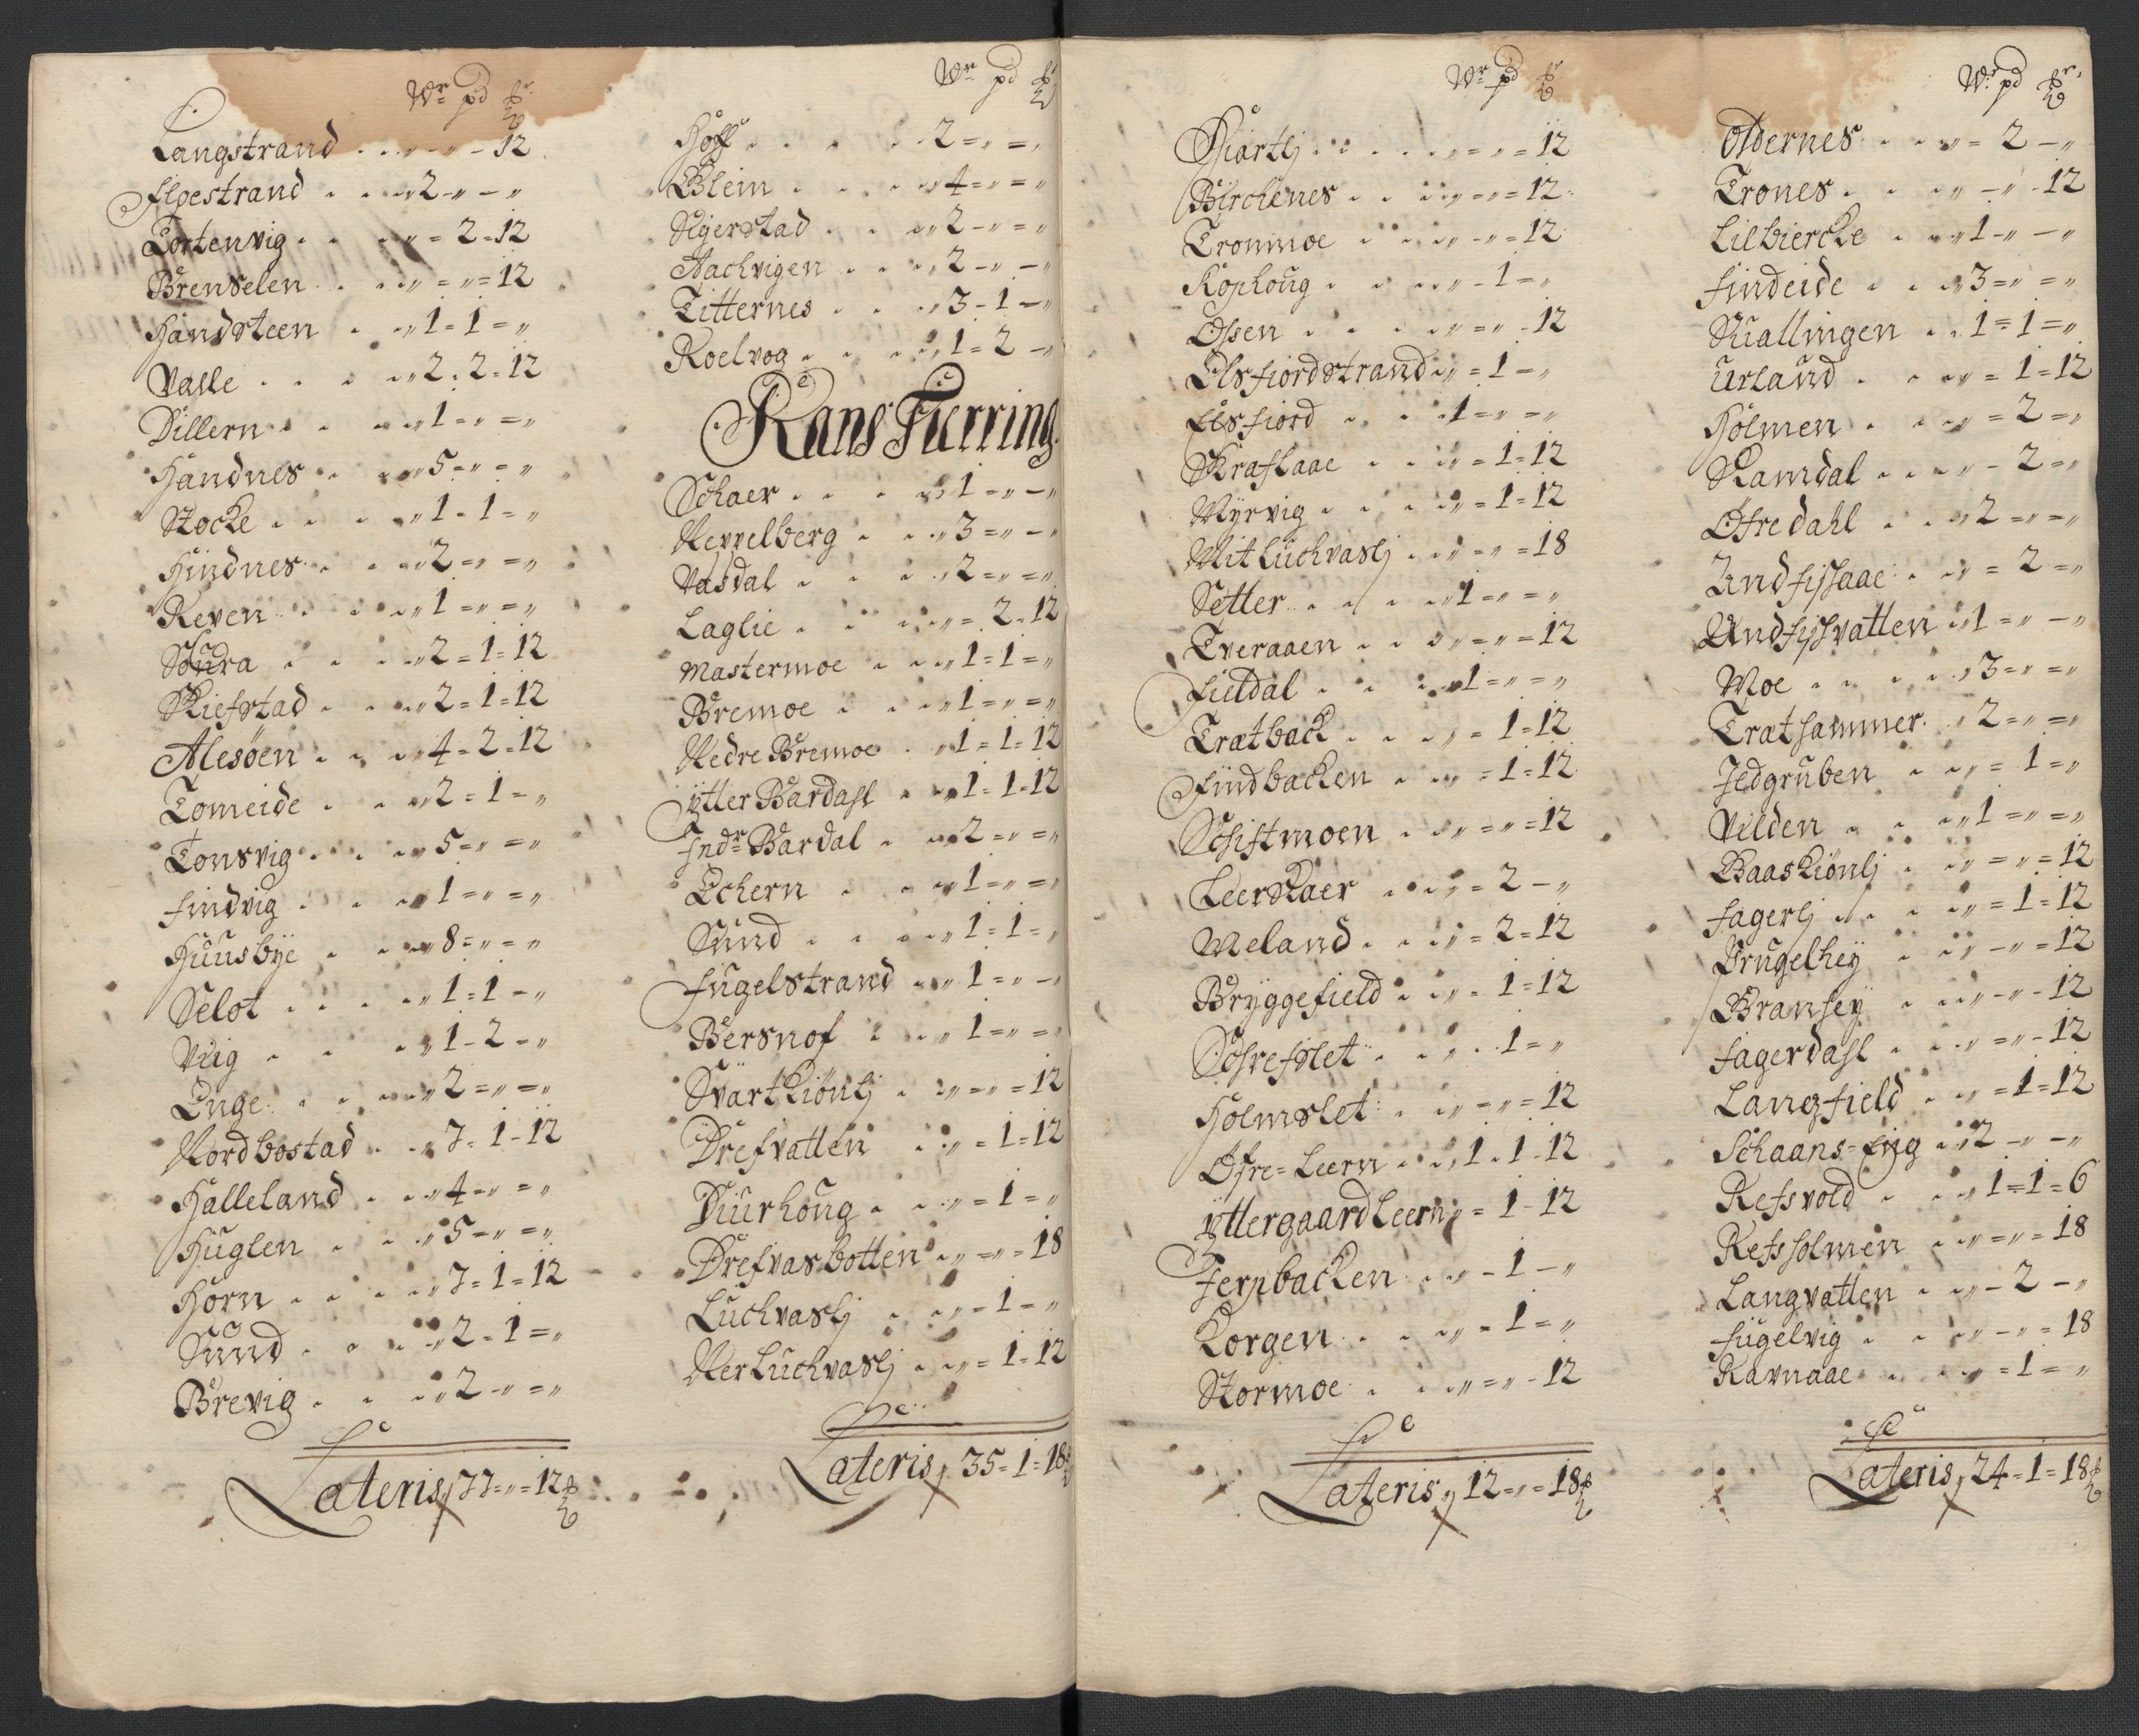 Wr pd
Langstrand . . „ - „ - 12
Elvestrand . . . „ 2 - „ - „
Tortenvig . . „ = 2 = 12
Brenselen . . „ = „ = 12
Handsteen . . „ 1 = 1 = „
Valle . . . „ 2 = 2 = 12
Dillern . . „ 1 = „ = „
Handnes . . „ 5 = „ = „
Stocke . . . „ 1 = 1 = „
Hindnes . . „ 2 = „ = „
Reven . . . „ 1 = „ = „
Soura . . . „ 2 = 1 = 12
Skiefstad . . „ 2 = 1 = 12
Alesöen . . „ 4 = 2 = 12
Tomeide . . „ 2 = 1 = „
Tonsvig . . „ 5 = „ = „
Findvig . . „ 1 = „ = „
Huusbye . . „ 8 = „ = „
Selot . . . „ 1 = 1 - „
Viig . . . „ 1 - 2 - „
Enge . . . „ 2 = „ = „
Nordbostad . . „ 7 = 1 - 12
Halleland . . „ 4 = „ = „
Huglen . . „ 5 = „ = „
Horn . . . „ 7 = 1 = 12
Sund . . . „ 2 = 1 = „
Brevig . . . „ 2 - „ = „
Lateris 77 = „ = 12
Wr pd
Hoff . . . . 2 = „ = „
Blein . . . „ 4 = „ = „
Sgerstad . . „ 2 - „ = „
Aachvigen . . „ 2 - „ - „
Titternes . . „ 3 - 1 - „
Roelvog . . . „ 1 = 2 - „
Rans Fierring
Schaer . . . „ 1 = „ - „
Neppelberg . . „ 3 = „ - „
Vasdal . . . „ 2 = „ = „
Laglie . . . „ = 2 = 12
Mastermoe . . „ 1 = 1 = „
Bremoe . . „ 1 = „ = „
Nedre Bremoe . „ 1 = 1 = 12
Ytter Bardahl . „ 1 = 1 = 12
Indr Bardal . „ 2 = „ = „
Echern . . „ 1 = „ = „
Sund . . . „ 1 = 1 = „
Fugelstrand . „ 1 = „ - „
Bersnof . . „ 1 = „ = „
Svartkiönlj . „ = „ = 12
Drefvatten . „ = 1 = 12
Diurhoug . . „ = 1 = „
Drefvasbotten . „ = „ = 18
Luchvaslj . . „ = 1 = „
Ner Luchvaslj . „ = 1 = 12
Lateris, 35 = 1 = 18
Wr pd
Hiartlj . . . „ = „ = 12
Birchenes . . „ = „ = 12
Trommoe . . „ - „ = 12
Kophoug . . . „ - 1 = „
Olsen . . . „ = „ - 12
Elsfiordstrand „ = 1 - „
Elsfiord . . . 1 = „ = „
Kraflaae . . „ = 1 = 12
Myrvig . . . „ = 1 = 12
Mit Luchvaslj . „ = „ = 18
Setter . . . „ 1 = „ = „
Tveraaen . . „ = „ = 12
Fieldal . . . „ 1 = „ = „
Trætback . . . „ = 1 = 12
Findbacken . . „ = 1 = 12
Schistmoen . . „ = „ = 12
Leerskaer . . „ = 2 - „
Meland . . . „ = 2 = 12
Bryggefield . . „ = 1 = 12
Schrefslet . . „ . 1 = „
Holmslet . . „ = „ = 12
Öfre = Leern . . „ 1 . 1 - 12
Yttergaard Leern „ = 1 - 12
Jernbacken . . „ - 1 - „
Korgen . . . „ = 1 = „
Stormoe . . „ = „ - 12
Lateris „ 12 = „ = 18
Wr pd
Oldernes . . „ = 2 - „
Trones . . „ - „ - 12
Lilbiercke . . „ 1 - „ - „
Findeide . . „ 3 = „ = „
Suallingen . . 1 = 1 = „
Urland . . „ = 1 = 12
Holmen . . „ = 2 = „
Ramdal . . . „ - 2 = „
Öfredahl . . „ 2 = „ = „
Undfissaae . „ = 2 = „
Undfissvatten „ 1 = „ - „
Moe . . . . 3 = „ = „
Træthammer . „ 2 = „ = „
Jedgruben . . „ = 1 = „
Velden . . . „ 1 = „ = „
Baaskiönlj . . „ = „ = 12
Fagerlj . . . „ = 1 = 12
Drugelhey . . „ - „ = 12
Bransey . . „ - „ - 12
Fagerdahl . . „ = „ - 12
Langfield . . „ = 1 = 12
Schaans = Eng . „ 2 - „ - „
Refsvold . . „ 1 = 1 = 6
Refsholmen . . „ = „ = 18
Langvatten . . „ - 2 - „
Fugelvig . . „ - „ = 18
Ravnaae . . „ = 1 = „
Lateris, 24 = 1 = 18